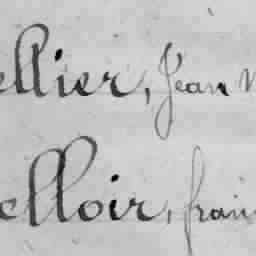 ellier, Jean
elloir, fran